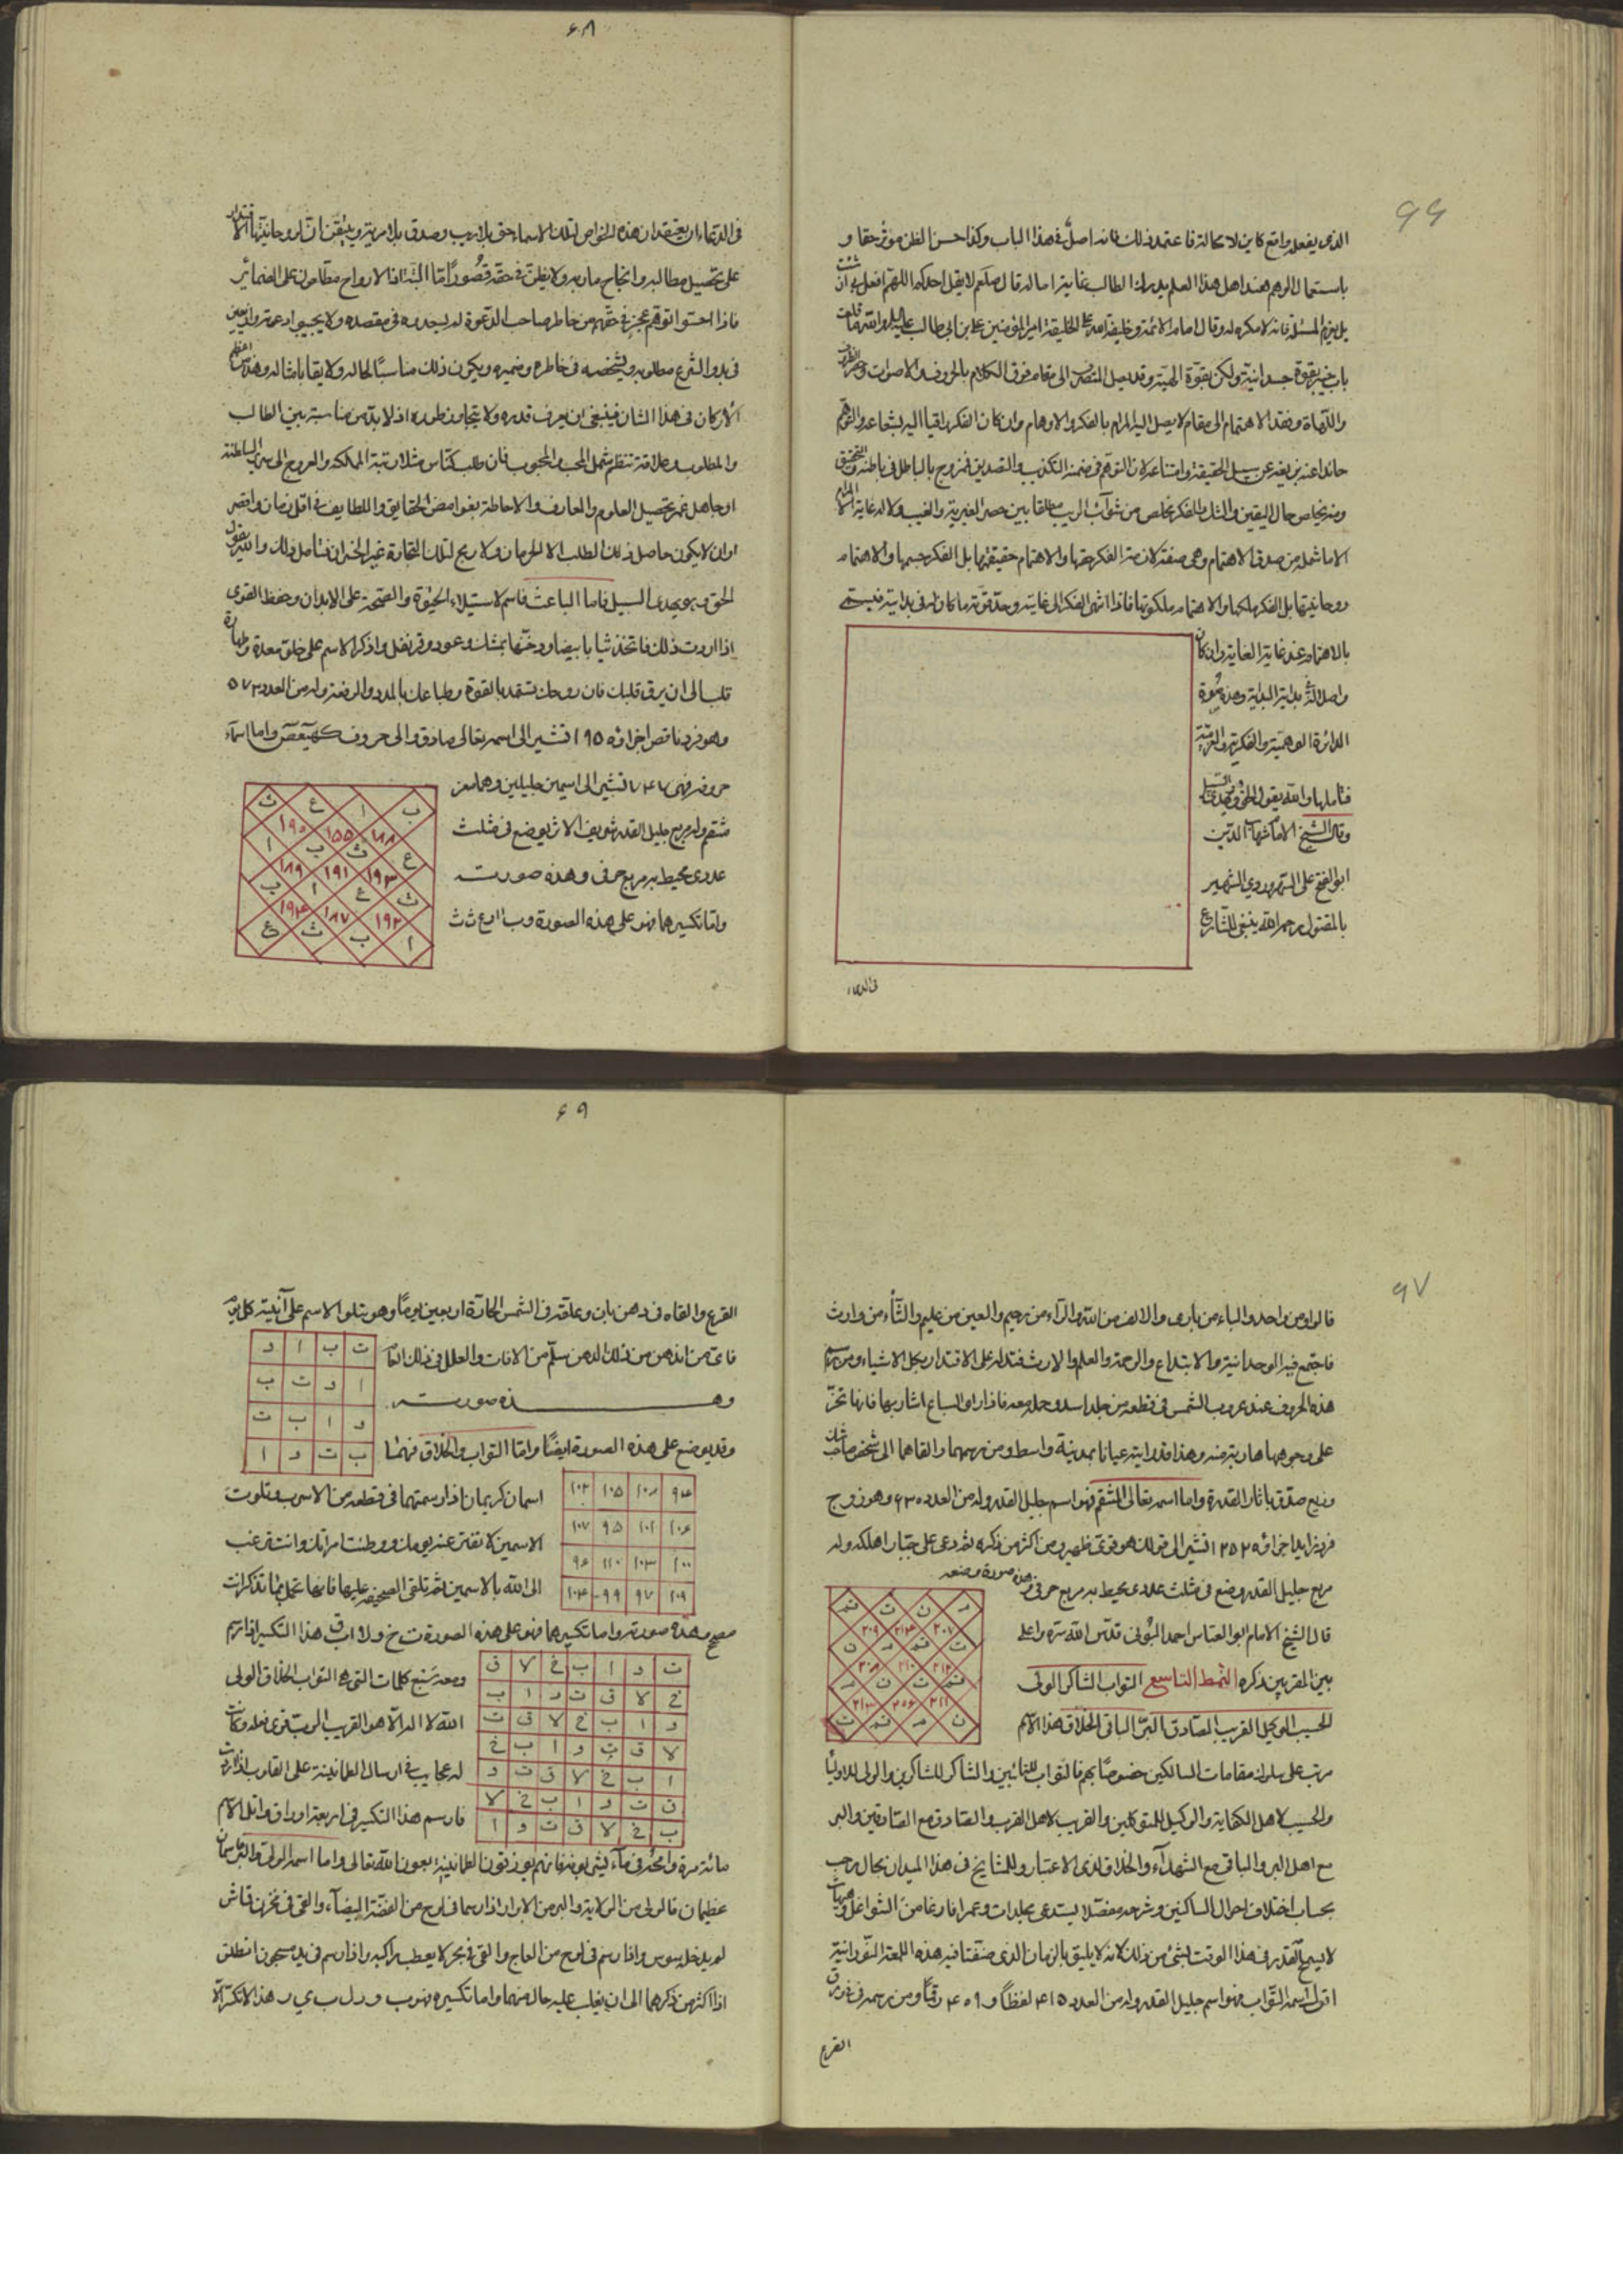 ٩٩
الذى يفعله واقع كاين لا محالة فاعتمد ذلك فانه اصلٌ فى هذا الباب وكذا حسن الظن موثر حقا و
باستعمال الوهم عند اهل هذا العلم يدرك الطالب غاية اماله قال صلعم لا يقل احدكم اللهم افعل بى ان شئت
بل يعزم المسئلة فانه لا مكره له وقال امام الائمة وخليفة الخليقة امير المؤمنين على بن ابى طالب عليه والله ما قلعت
باب خيبر بقوة جسدانية ولكن بقوة الهية وقد يصل المتصرف الى مقام فوق الكلام بالحروف والاصوات
والدعاة وفقد الاهتمام الى مقام لا يصل اليه المرام بالفكر والاوهام وان كان الفكر راقيا اليه بشعاعه والتوهم
حائدا عنه بزيغه عن سبيل الحقيقة وامتناعه لان التوهم فى ضمنه التكذيب والتصديق فممزوج بالباطل فى باطنه التحقيق
ومنه يخلص حال اليقين والشك والفكر يخلص من شوائب الريب مطلقا بين حصر الغيرية والغيب ولا له غاية
الا ما شمله من صدق الاهتمام وهى صفة لان مترا الفكر حقها والاهتمام حقيقتها بل الفكر جسمها والاهتمام
روحانيتها بل الفكر ملكها والاهتمام ملكوتها فاذا انتهى الفكر الى غايته وحد قوته ما كان له فى بدايته فيستى
بالاهتمام عند غاية الغاية وان كان
واصلا الى بداية البداية وهذه صورة
الدائرة الوهمية والفكرية والعرشية
فتاملها والله يقول الحق ويهدى السبيل
وقال الشيخ الامام شهاب الدين
ابو الفتح على السهروردى الشهير
بالمقتول رحمه الله ينبغى للشارع
فى الدعاء
٦٨
فى الدعاء ان يعتقد ان هذه الخواص لتلك الاسماء حق بلا ريب وصدق بلا مرية ويتيقن ان لروحانيتها الاقتدار
على تحصيل مطالبه وانجاح ماربه ولا يظن فى حقه قصورًا ما البتة اذ الارواح مطلعون على الضمائر
فاذا احسوا توهم عجز فى حقهم من خاطر صاحب الدعوة لم يسعدوه فى مقصده ولا يجيبوا دعوته
فى بدو الشرع مطلوبه ويشخصه فى خاطره وضميره ويكون ذلك مناسبًا لحاله ولا يقا بامثاله وهذه من اعظم
الاركان فى هذا الشان فينبغى ان يعرف قدره ولا يتجاوز طوره اذ لا بد من مناسبة بين الطالب
والمطلوب وعلاقة تنظم شمل المحب والمحبوب فان طلب كناس مثلا رتبة المملكة والعروج الى سرير السلطنة
او جاهل غمر تحصيل العلوم والمعارف والاحاطة بغوامض الحقايق واللطايف فى اقل زمان واقصر
اوان لا يكون حاصل ذلك الطلب الا الحرمان ولا ربح لتلك التجارة غير الخسران فتامل ذلك والله يقول
الحق وهو يهدى السبيل فاما الباعث فاسم لاستيلاء الحيوة والصحة على الابدان وحفظ القوى
اذا اردت ذلك فاتخذ ثيابا بيضا ودخنها بمثلث وعود وقرنفل واذكر الاسم على خلق معدة وطهارة
قلب الى ان يرق قلبك فان روحك تستمد بالقوة وطباعك بالمدد والرفعة وله من العدد ٥٧٣
وهو فرد ناقص اجزائه ١٩٥ تشير الى اسمه تعالى صادق والى حروف كهيعص واما اسماء
حروفه فهى ٧٤٧ تشير الى اسمين جليلين وهما معز
منتقم وله مربع جليل القدر شريف الاثر يوضع فى مثلث
عددى محيط به مربع حرفى وهذه صورته
واما تكسيرهما فهو على هذه الصورة وب اا رع ث ث
ث ع ا ب
١٩٠ ١٥٥ ١٨٨
ا ب ث ع
١٨٩ ١٩١ ١٩٣
ب ا ع ث
١٩٤ ١٨٧ ١٩٢
ع ث ب ا
٩٧
فالواو من واحد والباء من بارى والالف من الله والراء من رحيم والعين من عليم والثاء من وارث
فاجتمع فيه الوحدانية والابتداع والرحمة والعلم والارث فتدل على الاقتدار بكل الاشياء ومن رسم
هذه الحروف عند غروب الشمس فى قطعة من جلد اسد وحمله معه فاذا راى السباع اشار بها فانها تخر
على وجوهها هاربة منه وهذا قد رايته عيانا بمدينة واسط ومن رسمهما والقاهما الى شخص صاحب شان
وزيع صدق باثار القدرة واما اسمه تعالى المنتقم فهو اسم جليل القدر وله من العدد ٦٣٠ وهو زوج
فرد زايد اجزائه ١٢٥٢ تشير الى قولك هو قوى ظهير ومن اكثر من ذكره ثم دعى على جبار اهلكه وله
مربع جليل القدر وضع فى مثلث عددى محيط به مربع حرفى وهذه صورة وضعه
قال الشيخ الامام ابو العباس احمد البونى قدس الله سره واعلى
بين المقربين ذكره النمط التاسع التواب الشاكر الولى
الحسيب الوكيل القريب الصادق البر الباقى الخلاق هذا الاسم
مرتب على سلوك مقامات السالكين خصوصًا بهم فالتواب للتائبين والشاكر للشاكرين والولى للاوليا
والحسيب لاهل الكفاية والوكيل للمتوكلين والقريب لاهل القرب والصادق مع الصادقين والبر
مع اهل البر والباقى مع الشهداء والخلاق لذى الاعتبار وللمشايخ فى هذا الميدان مجال رحب
بحساب اختلاف احوال السالكين وشرحه مفصلا يستدعى مجلدات وعمرا فارغا من الشواغل
لا يسمح القدر فى هذا الوقت لشئ من ذلك لانه لا يليق بالزمان الذى صنفنا فيه هذه اللمعة النورانية
اقول اسمه التواب فهو اسم جليل القدر وله من العدد ٤١٥ لفظًا و ٤٠٩ رقمًا ومن رسمه فى
القرع
٦٩
القرع والقاه فى دهن بان وعلقه فى الشمس الحارة اربعين يومًا وهو يتلو الاسم على آنيته كل يوم
فاى من ادهن من ذلك الدهن سلم من الافات والعلل فى ذلك العام
وهذه صورته
ت ب ا و
ا و ت ب
و ا ب ت
ب ت و ا
وقد يوضع على هذه الصورة ايضًا واما التواب والخلاق فهما
اسمان كريمان اذا رسمتهما فى قطعة من الاسرب وتلوت
الاسمين لا تفتر عنه يومك ووطئت امراتك وانت ترغب
الى الله بالاسمين ثم تلقى الصحيفة عليها فانها تحمل باذن الله
٩٤ ١٠٨ ١٠٥ ١٠٢
١٠٦ ١٠١ ٩٥ ١٠٧
١٠٠ ١٠٣ ١١٠ ٩٦
١٠٩ ٩٧ ٩٩ ١٠٤
صح وهذه صورته واما تكسيرهما فهو على هذه الصورة ت خ و لا ا ب ق هذا التكسير اذا رسم
ومعه تسع كلمات التى هى التواب الخلاق الولى
الله لا اله الا هو القريب الرب قوى فعله وكانت
له عجايب فى ارسال الطمانينة على القلوب اذا اردت
فارسم هذا التكسير فى اربعة اوراق واتل الاسم
ت و ا ب خ لا ق
خ لا ق ت و ا ب
و ا ب خ لا ق ت
لا ق ت و ا ب خ
ا ب خ لا ق ت و
ق ت و ا ب خ لا
ب خ لا ق ت و ا
مائة مرة وامحه فى ماء يشربونه فانهم يرزقون الطمانينة بعون الله تعالى واما اسمه الولى والبر اسمان
عظيمان فالولى من الولاية والبر من الابرار اذا رسما فى لوح من الفضة البيضاء والقى فى مخزن قماش
لم يدخله سوس واذا رسم فى لوح من العاج والقى فى بحر لا يعطب راكبه واذا رسم فى يد مسجون انطلق
اذا اكثر من ذكرهما الى ان يغلب عليه حال منهما واما تكسيره فهو ب و ر ل ب ي ر هذا